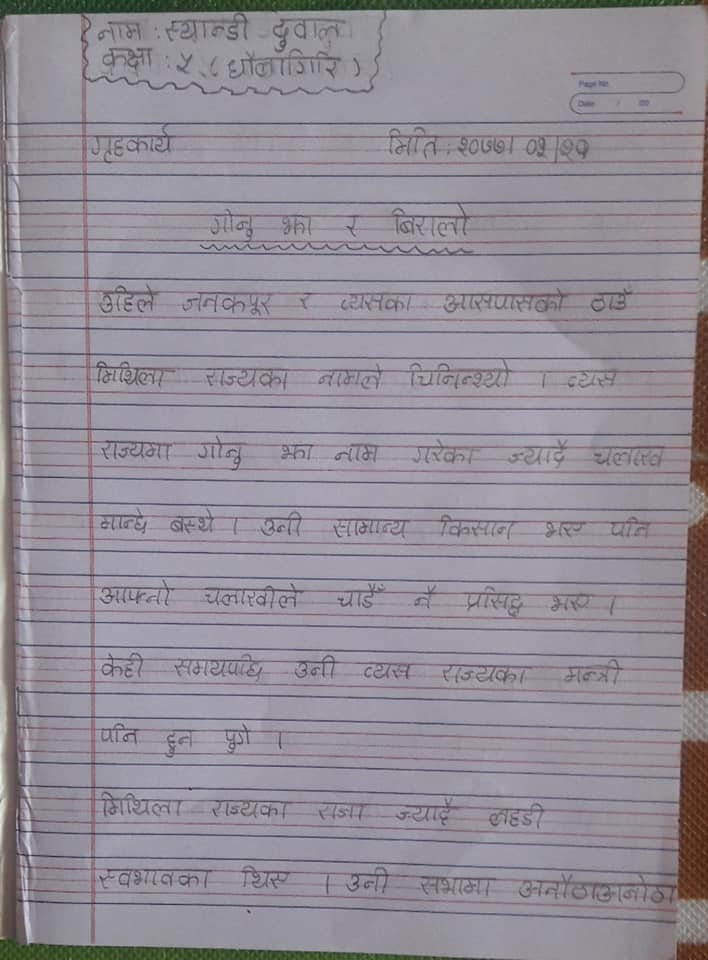 नाम : स्यान्डी दुवाल
कक्षा : ५ (धौलागिरि)
Page No.
Date / /20
गृहकार्य मिति : २०७७। ०२/२७
गोनु झा र बिरालो
उहिले जनकपूर र त्यसका आसपासको ठाउँ
मिथिला राज्यका नामले चिनिन्थ्यो । त्यस
राज्यमा गोनु झा नाम गरेका ज्यादै चलाख
मान्छे बस्थे । उनी सामान्य किसान भए पनि
आफ्नो चलाखीले चाडैँ नै प्रसिद्ध भए ।
केही समयपछि उनी त्यस राज्यका मन्त्री
पनि हुन पुगे ।
मिथिला राज्यका राजा ज्यादै लहडी
स्वभावका थिए । उनी सभामा अनौठाअनोठा